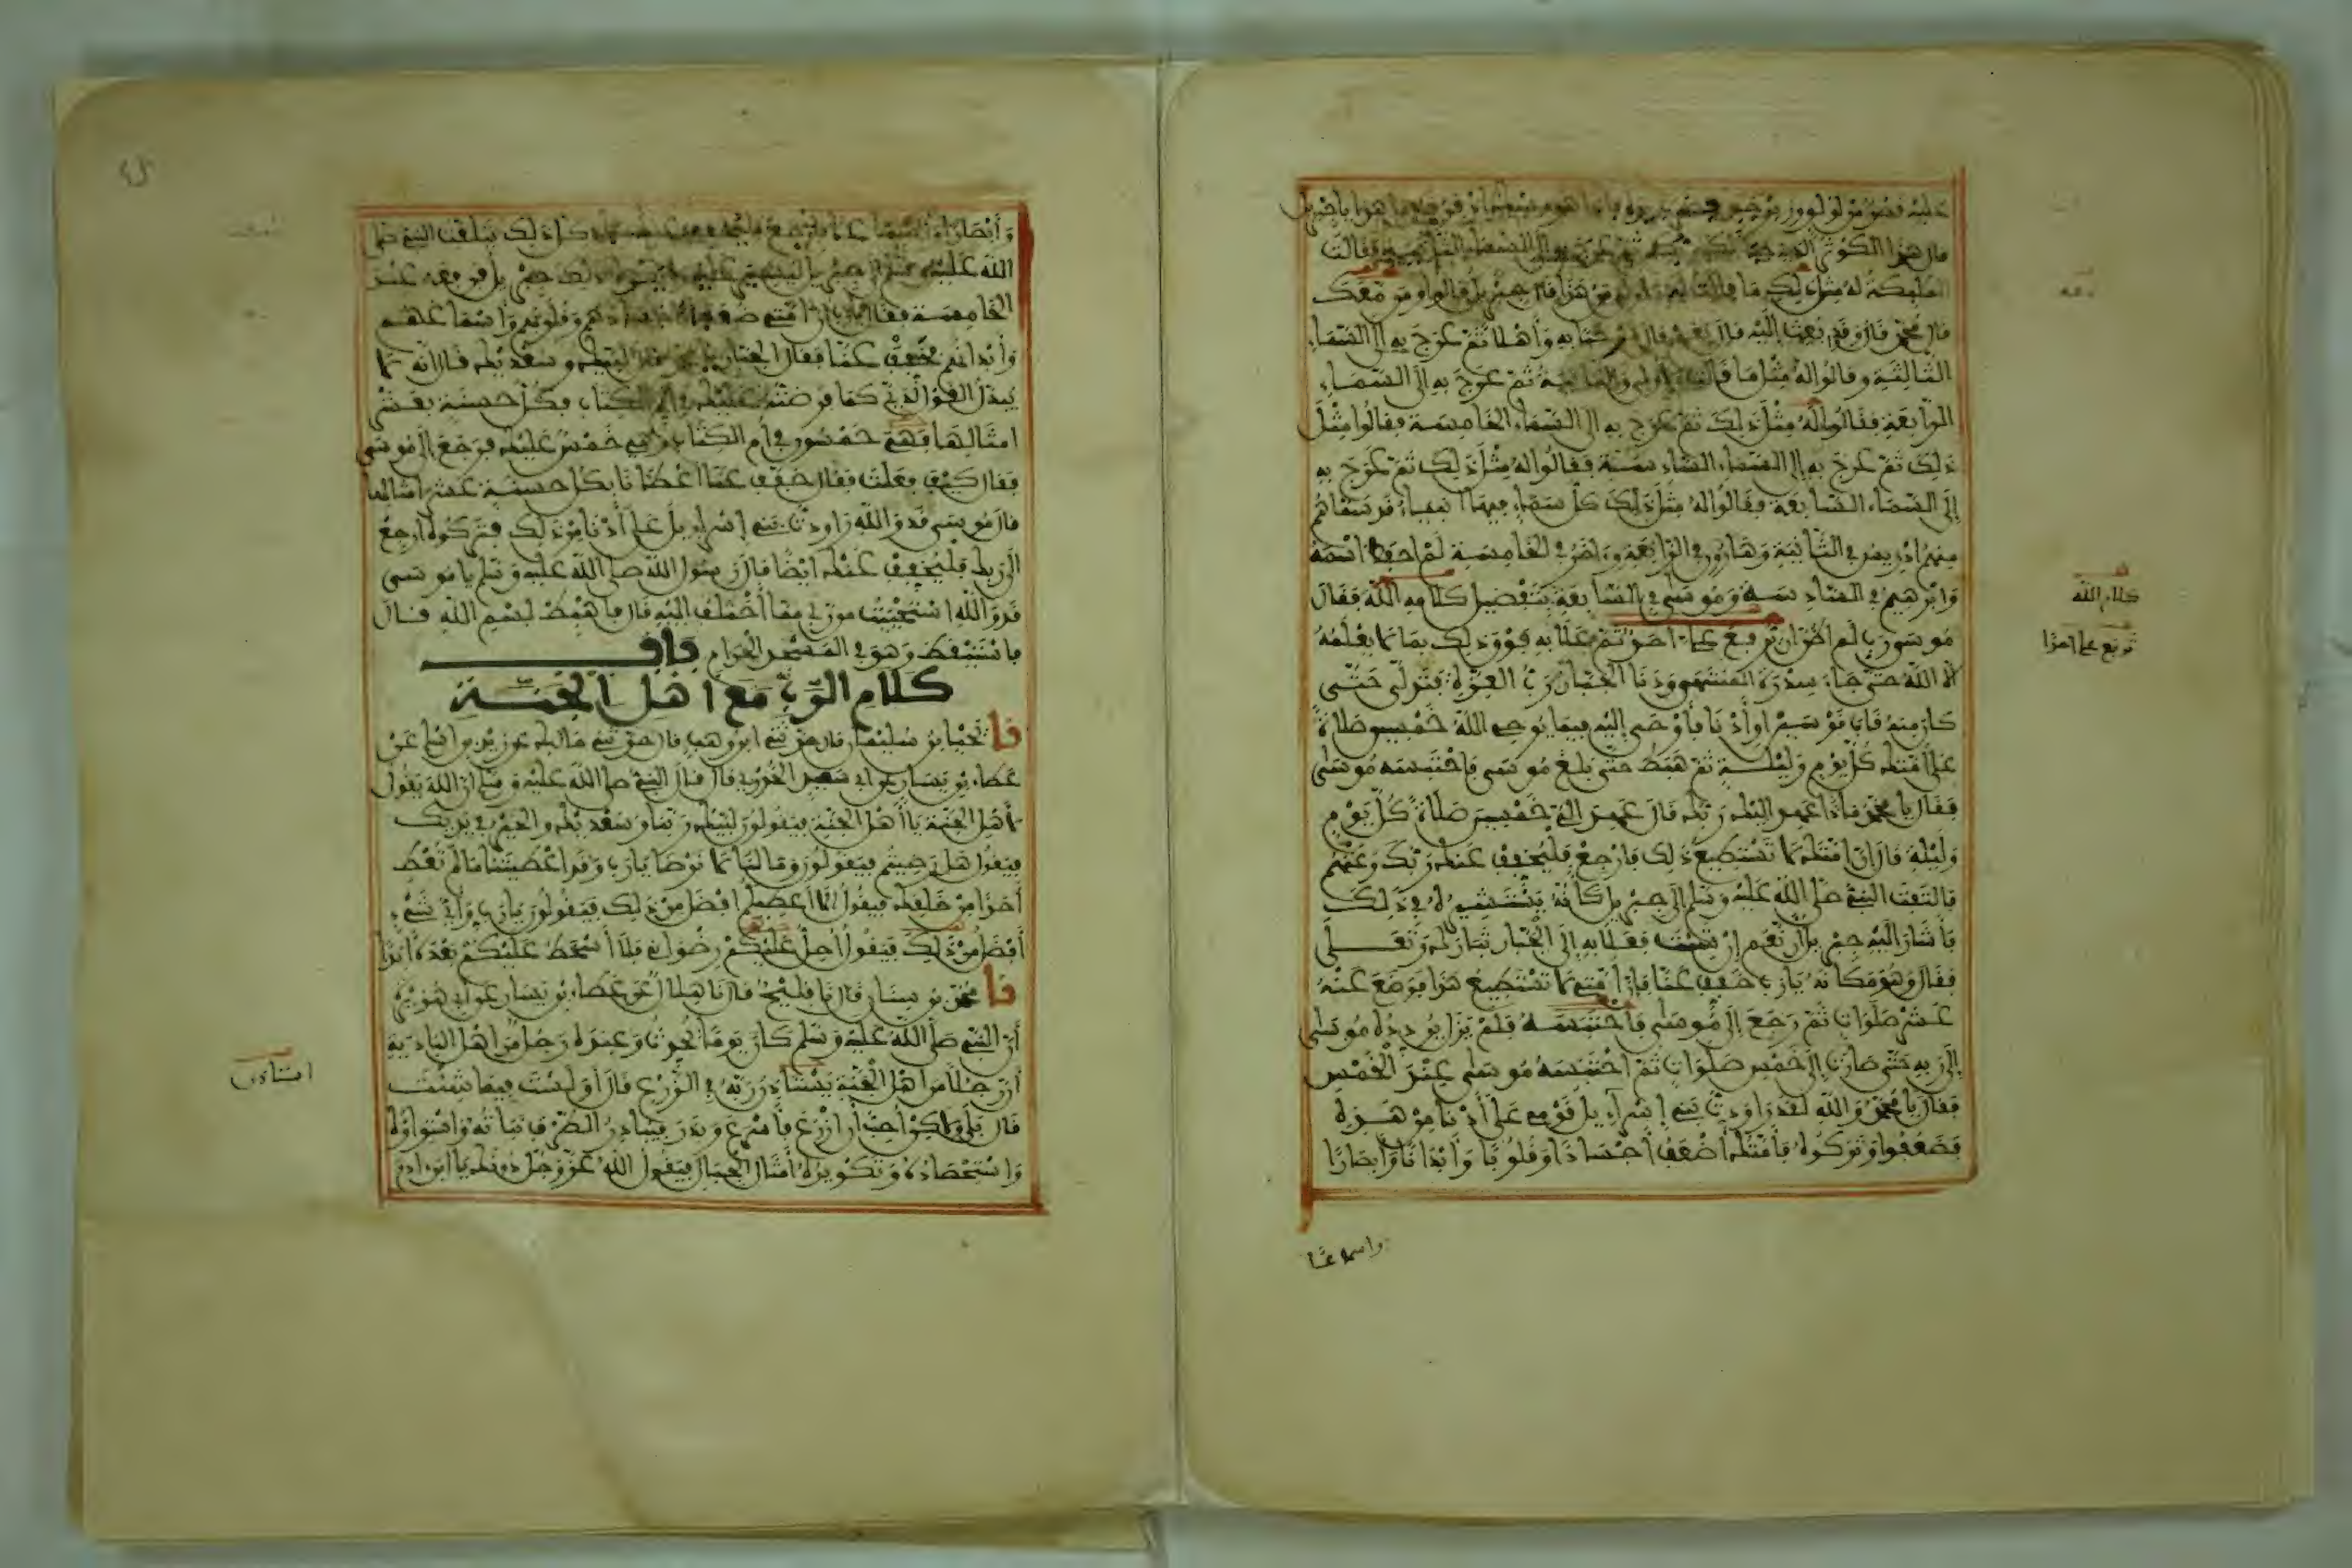 عليه قصر من لؤلؤ وزبرجد فضرب يده فإذا هو مسك قال ما هذا يا جبريل
قال هذا الكوثر الذي خبأ لك ربك ثم عرج به إلى السماء الثانية فقالت
الملئكة له مثل ذلك ما قالت له الأولى من هذا قال جبريل قالوا ومن معك
قال محمد قالوا وقد بعث إليه قال نعم قالوا مرحبا به وأهلا ثم عرج به إلى السماء
الثالثة وقالوا له مثل ما قالت الأولى والثانية ثم عرج به إلى السماء
الرابعة فقالوا له مثل ذلك ثم عرج به إلى السماء الخامسة فقالوا مثل
ذلك ثم عرج به إلى السماء السادسة فقالوا له مثل ذلك ثم عرج به
إلى السماء السابعة فقالوا له مثل ذلك كل سماء فيها أنبياء قد سماهم
منهم إدريس في الثانية وهارون في الرابعة وآخر في الخامسة لم أحفظ اسمه
وإبرهيم في السادسة وموسى في السابعة بتفضيل كلامه الله فقال
موسى رب لم أظن أن ترفع علي أحدا ثم علا به فوق ذلك بما لا يعلمه
إلا الله حتى جاء سدرة المنتهى ودنا الجبار رب العزة فتدلى حتى
كان منه قاب قوسين أو أدنى فأوحى إليه فيما يوحي الله خمسين صلاة
على أمتك كل يوم وليلة ثم هبط حتى بلغ موسى فاحتبسه موسى
فقال يا محمد ماذا عهد إليك ربك قال عهد إلي خمسين صلاة كل يوم
وليلة قال إن أمتك لا تستطيع ذلك فارجع فليخفف عنك ربك وعنهم
فالتفت النبي صلى الله عليه وسلم إلى جبريل كأنه يستشيره في ذلك
فأشار إليه جبريل أن نعم إن شئت فعلا به إلى الجبار تبارك وتعلى
فقال وهو مكانه يا رب خفف عنا فإن أمتي لا تستطيع هذا فوضع عنه
عشر صلوات ثم رجع إلى موسى فاحتبسه فلم يزل يردده موسى
إلى ربه حتى صارت إلى خمس صلوات ثم احتبسه موسى عند الخمس
فقال يا محمد والله لقد راودت بني إسراءيل قومي على أدنى من هذه
فضعفوا وتركوه فأمتك أضعف أجسادا وقلوبا وأبدانا وأبصارا
كلام الله
ترفع علي أحدا
وأسماعا
وأبصارا وأسماعا فارجع فليخفف عنك ربك كل ذلك يتلفت النبي صلى
الله عليه وسلم إلى جبريل ليشير عليه ولا يكره ذلك جبريل فرفعه عند
الخامسة فقال يا رب إن أمتي ضعفاء أجسادهم وقلوبهم وأسماعهم
وأبدانهم فخفف عنا فقال الجبار يا محمد قال لبيك وسعديك قال إنه لا
يبدل القول لدي كما فرضت عليك في أم الكتاب فكل حسنة بعشر
أمثالها فهي خمسون في أم الكتاب وهي خمس عليك فرجع إلى موسى
فقال كيف فعلت فقال خفف عنا أعطانا بكل حسنة عشر أمثالها
قال موسى قد والله راودت بني إسراءيل على أدنى من ذلك فتركوه ارجع
إلى ربك فليخفف عنك أيضا قال رسول الله صلى الله عليه وسلم يا موسى
قد والله استحييت من ربي مما أختلف إليه قال فاهبط بسم الله قال
فاستيقظ وهو في المسجد الحرام باب
كلام الرب مع أهل الجنة
نا يحيى بن سليمان قال حدثني ابن وهب قال حدثني مالك عن زيد بن أسلم عن
عطاء بن يسار عن أبي سعيد الخدري قال قال النبي صلى الله عليه وسلم إن الله يقول
لأهل الجنة يا أهل الجنة فيقولون لبيك ربنا وسعديك والخير في يديك
فيقول هل رضيتم فيقولون وما لنا لا نرضى يا رب وقد أعطيتنا ما لم تعط
أحدا من خلقك فيقول ألا أعطيكم أفضل من ذلك فيقولون يا رب وأي شيء
أفضل من ذلك فيقول أحل عليكم رضواني فلا أسخط عليكم بعده أبدا
نا محمد بن سنان قال نا فليح قال نا هلال عن عطاء بن يسار عن أبي هريرة
أن النبي صلى الله عليه وسلم كان يوما يحدث وعنده رجل من أهل البادية
أن رجلا من أهل الجنة يستأذن ربه في الزرع قال أو لست فيما شئت
قال بلى ولكن أحب أن أزرع فأسرع وبذر فيبادر الطرف نباته واستواؤه
واستحصاده وتكويره أمثال الجبال فيقول الله عز وجل دونك يا ابن آدم
استأذن